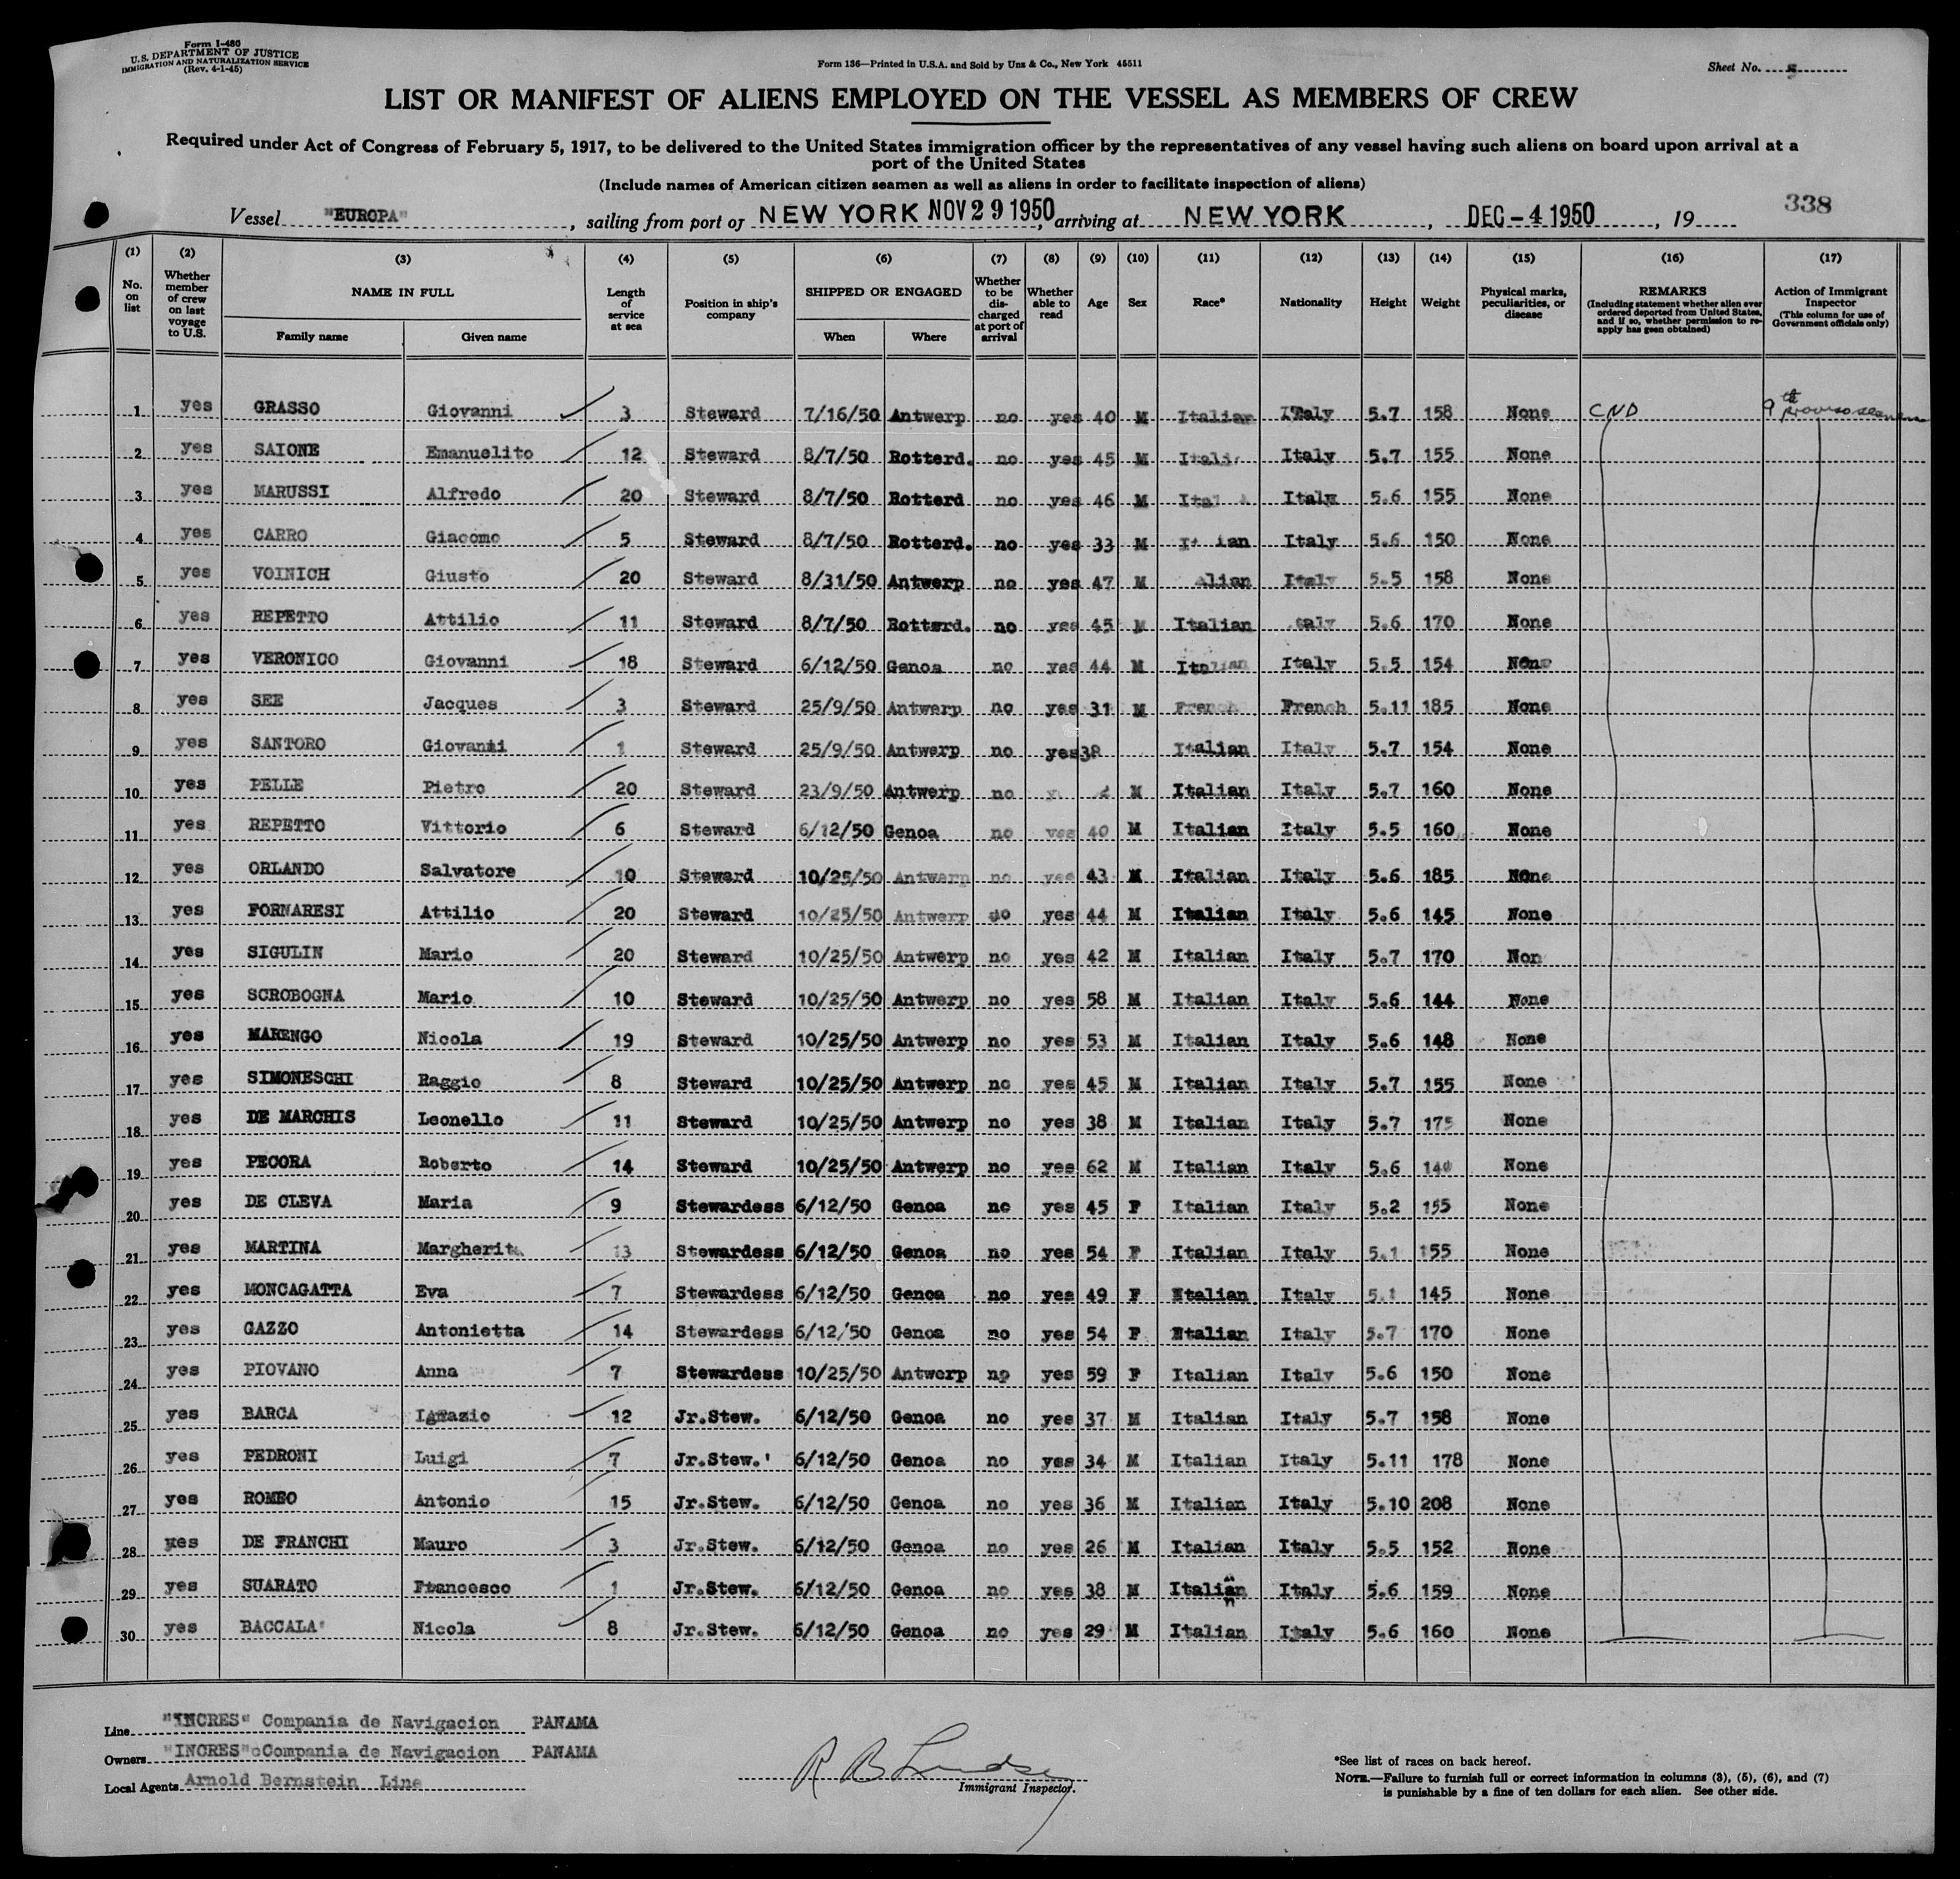 Form I-480
U.S. DEPARTMENT OF JUSTICE
IMMIGRATION AND NATURALIZATION SERVICE
(Rev. 4-1-45)
Form 136—Printed in U.S.A. and Sold by Unz & Co., New York 45511
Sheet No. 5
LIST OR MANIFEST OF ALIENS EMPLOYED ON THE VESSEL AS MEMBERS OF CREW
Required under Act of Congress of February 5, 1917, to be delivered to the United States immigration officer by the representatives of any vessel having such aliens on board upon arrival at a
port of the United States
(Include names of American citizen seamen as well as aliens in order to facilitate inspection of aliens)
338
Vessel "EUROPA", sailing from port of NEW YORK NOV 29 1950, arriving at NEW YORK, DEC - 4 1950, 19
(1) (2) (3) (4) (5) (6) (7) (8) (9) (10) (11) (12) (13) (14) (15) (16) (17)
No. on list
Whether member of crew on last voyage to U.S.
NAME IN FULL
Family name Given name
Length of service at sea
Position in ship's company
SHIPPED OR ENGAGED
When Where
Whether to be discharged at port of arrival
Whether able to read
Age
Sex
Race*
Nationality
Height
Weight
Physical marks, peculiarities, or disease
REMARKS
(Including statement whether alien ever ordered deported from United States, and if so, whether permission to re-apply has geen obtained)
Action of Immigrant Inspector
(This column for use of Government officials only)
1 yes GRASSO Giovanni 3 Steward 7/16/50 Antwerp no yes 40 M Italian ITaly 5.7 158 None CND 9th proviso seamen
2 yes SAIONE Emanuelito 12 Steward 8/7/50 Rotterd. no yes 45 M Itali Italy 5.7 155 None
3 yes MARUSSI Alfredo 20 Steward 8/7/50 Rotterd no yes 46 M Ital Italy 5.6 155 None
4 yes CARRO Giacomo 5 Steward 8/7/50 Rotterd. no yes 33 M It ian Italy 5.6 150 None
5 yes VOINICH Giusto 20 Steward 8/31/50 Antwerp no yes 47 M alian Italy 5.5 158 None
6 yes REPETTO Attilio 11 Steward 8/7/50 Rotterd. no yes 45 M Italian taly 5.6 170 None
7 yes VERONICO Giovanni 18 Steward 6/12/50 Genoa no yes 44 M Italian Italy 5.5 154 None
8 yes SEE Jacques 3 Steward 25/9/50 Antwerp no yes 31 M French French 5.11 185 None
9 yes SANTORO Giovanni 1 Steward 25/9/50 Antwerp no yes 38 Italian Italy 5.7 154 None
10 yes PELLE Pietro 20 Steward 23/9/50 Antwerp no M Italian Italy 5.7 160 None
11 yes REPETTO Vittorio 6 Steward 6/12/50 Genoa no yes 40 M Italian Italy 5.5 160 None
12 yes ORLANDO Salvatore 10 Steward 10/25/50 Antwerp no yes 43 M Italian Italy 5.6 185 None
13 yes FORNARESI Attilio 20 Steward 10/25/50 Antwerp no yes 44 M Italian Italy 5.6 145 None
14 yes SIGULIN Mario 20 Steward 10/25/50 Antwerp no yes 42 M Italian Italy 5.7 170 Non
15 yes SCROBOGNA Mario 10 Steward 10/25/50 Antwerp no yes 58 M Italian Italy 5.6 144 None
16 yes MARENGO Nicola 19 Steward 10/25/50 Antwerp no yes 53 M Italian Italy 5.6 148 None
17 yes SIMONESCHI Raggio 8 Steward 10/25/50 Antwerp no yes 45 M Italian Italy 5.7 155 None
18 yes DE MARCHIS Leonello 11 Steward 10/25/50 Antwerp no yes 38 M Italian Italy 5.7 175 None
19 yes PECORA Roberto 14 Steward 10/25/50 Antwerp no yes 62 M Italian Italy 5.6 140 None
20 yes DE CLEVA Maria 9 Stewardess 6/12/50 Genoa no yes 45 F Italian Italy 5.2 155 None
21 yes MARTINA Margherita 13 Stewardess 6/12/50 Genoa no yes 54 F Italian Italy 5.1 155 None
22 yes MONCAGATTA Eva 7 Stewardess 6/12/50 Genoa no yes 49 F Italian Italy 5.1 145 None
23 yes GAZZO Antonietta 14 Stewardess 6/12/50 Genoa no yes 54 F Italian Italy 5.7 170 None
24 yes PIOVANO Anna 7 Stewardess 10/25/50 Antwerp no yes 59 F Italian Italy 5.6 150 None
25 yes BARCA Ignazio 12 Jr.Stew. 6/12/50 Genoa no yes 37 M Italian Italy 5.7 158 None
26 yes PEDRONI Luigi 7 Jr.Stew.' 6/12/50 Genoa no yes 34 M Italian Italy 5.11 178 None
27 yes ROMEO Antonio 15 Jr.Stew. 6/12/50 Genoa no yes 36 M Italian Italy 5.10 208 None
28 yes DE FRANCHI Mauro 3 Jr.Stew. 6/12/50 Genoa no yes 26 M Italian Italy 5.5 152 None
29 yes SUARATO Francesco 1 Jr.Stew. 6/12/50 Genoa no yes 38 M Italian Italy 5.6 159 None
30 yes BACCALA' Nicola 8 Jr.Stew. 6/12/50 Genoa no yes 29 M Italian Italy 5.6 160 None
Line "INCRES" Compania de Navigacion PANAMA
Owners "INCRES" Compania de Navigacion PANAMA
Local Agents Arnold Bernstein Line
R B Lindsey
Immigrant Inspector.
*See list of races on back hereof.
NOTE.—Failure to furnish full or correct information in columns (3), (5), (6), and (7)
is punishable by a fine of ten dollars for each alien. See other side.